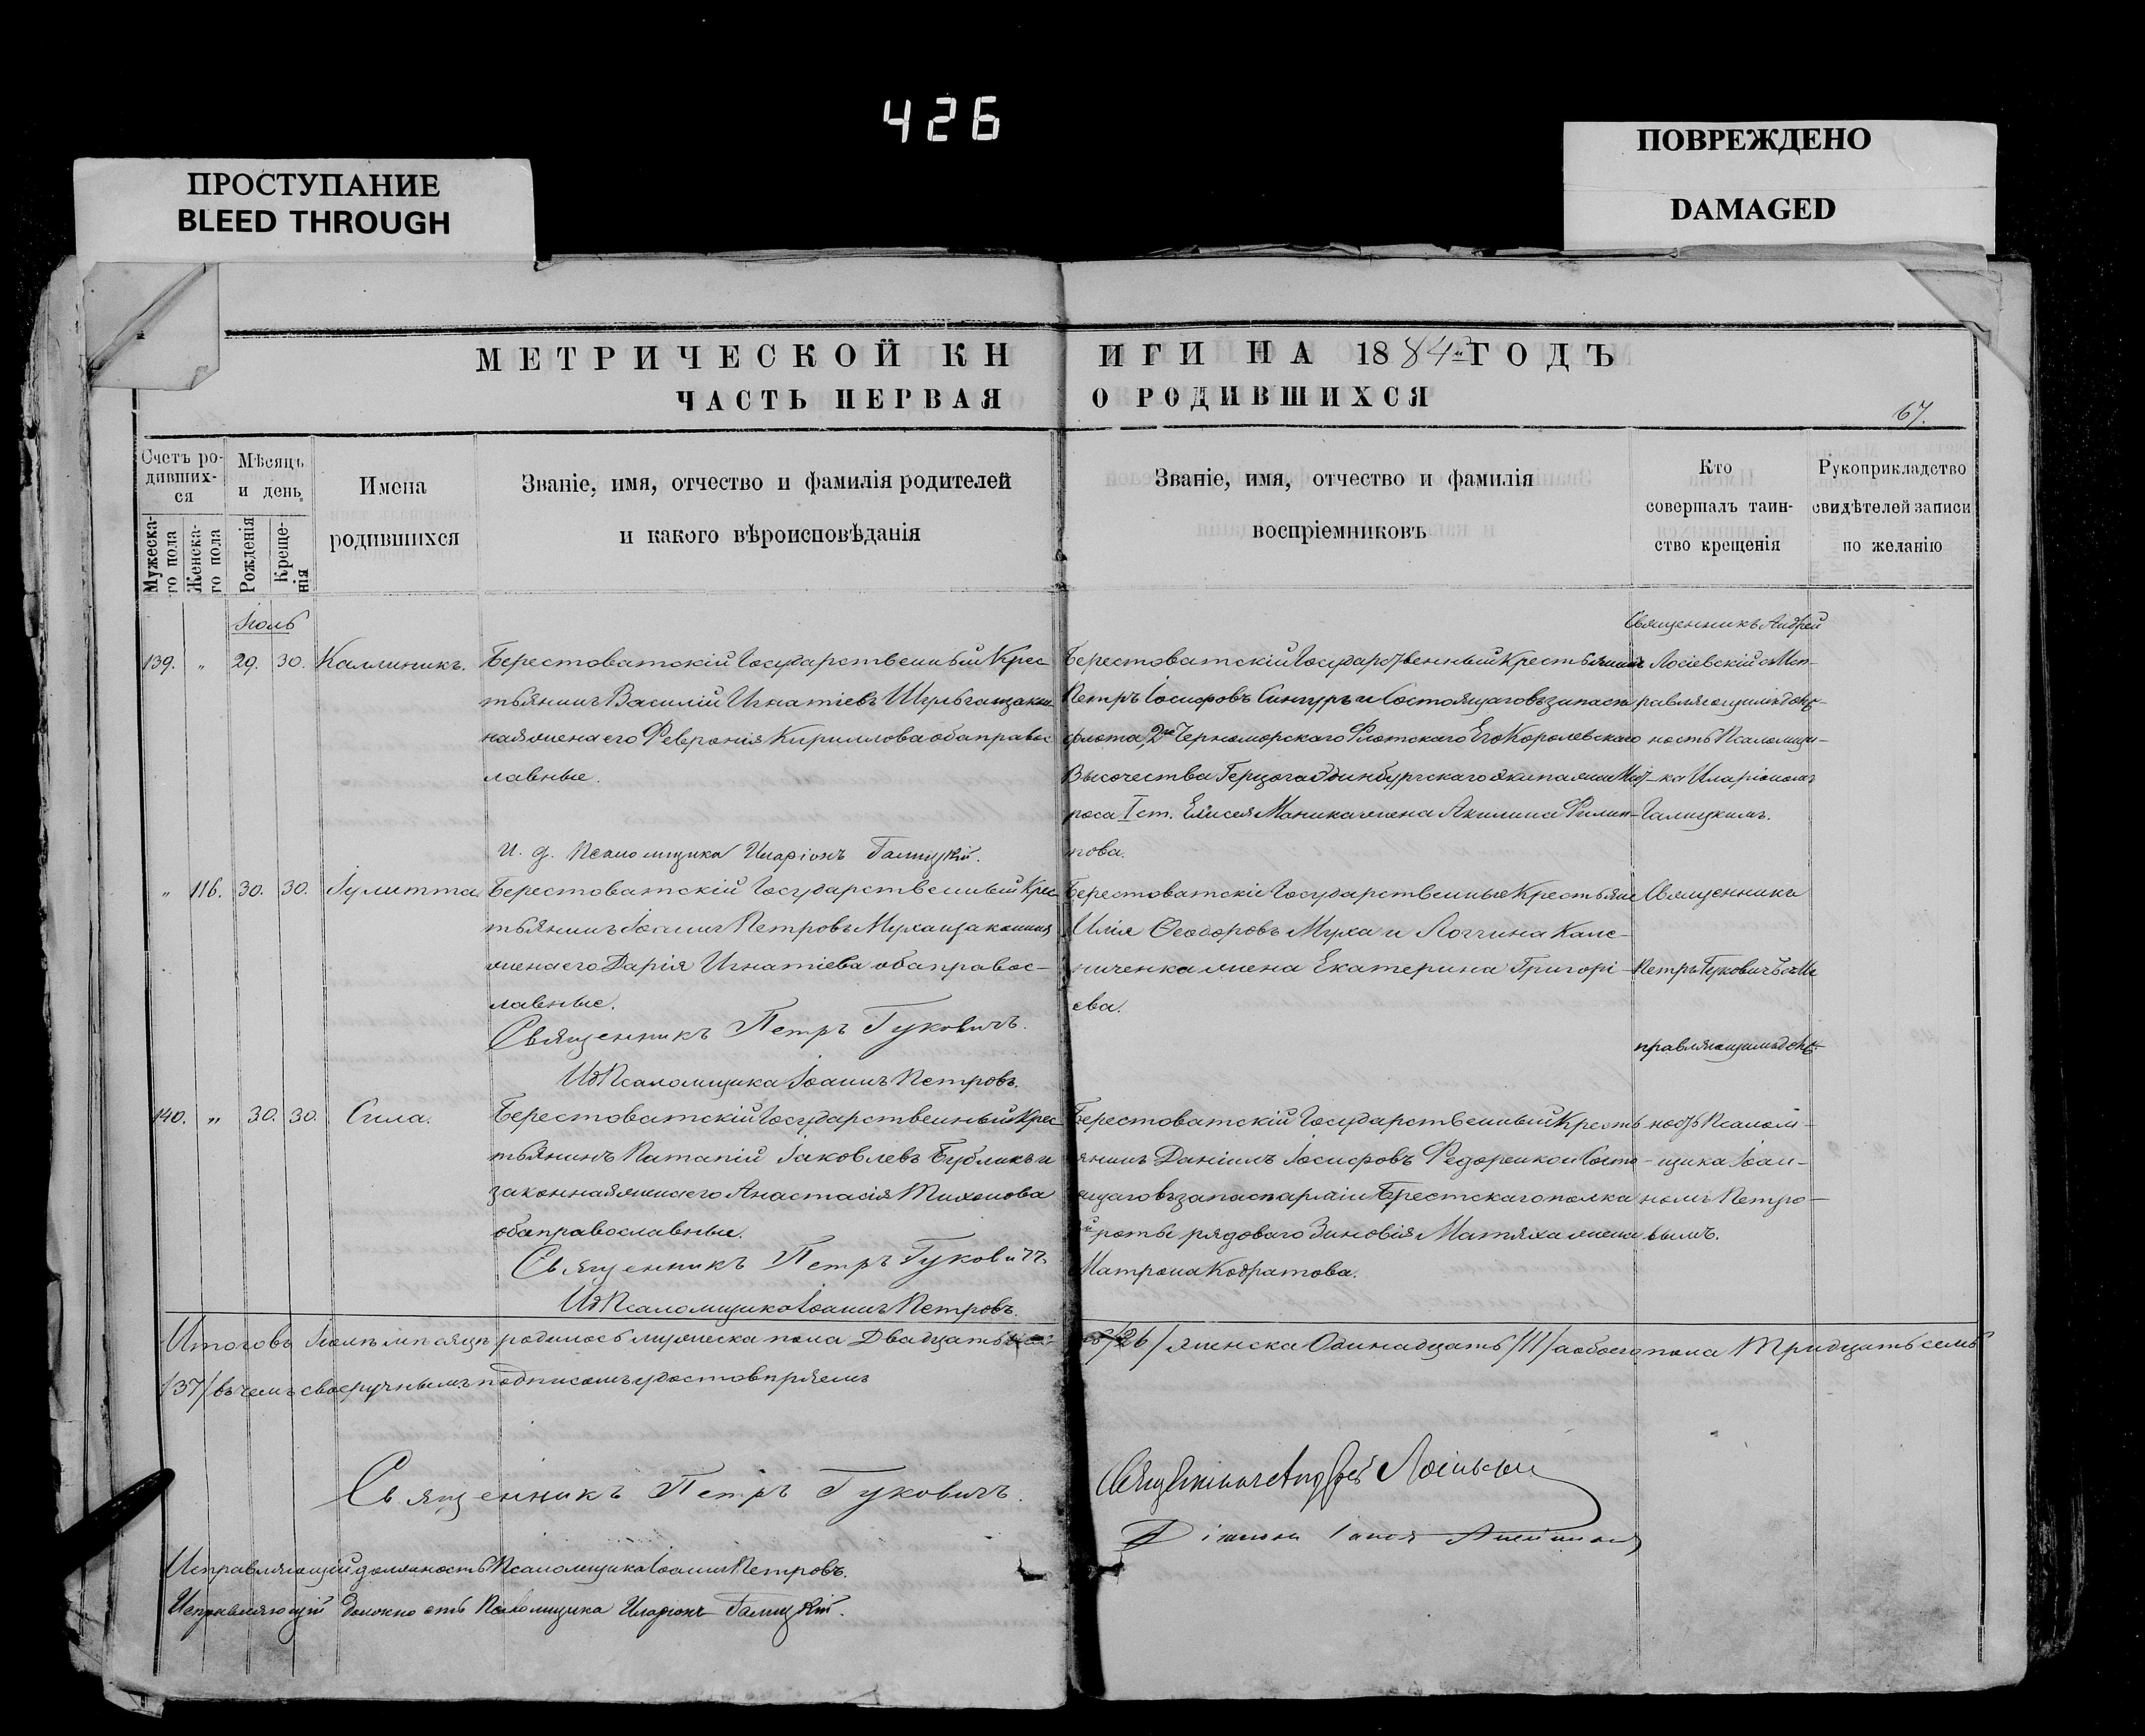 426
ПРОСТУПАНИЕ
BLEED THROUGH
ПОВРЕЖДЕНО
DAMAGED
МЕТРИЧЕСКОЙ КНИГИ НА 1884й ГОДЪ
ЧАСТЬ ПЕРВАЯ О РОДИВШИХСЯ
67.
Счетъ ро-
дивших-
ся
Мужеска-
го пола
Женска-
го пола
Мѣсяцъ
и день
Рожденія
Креще-
нія
Имена
родившихся
Званіе, имя, отчество и фамилія родителей
и какого вѣроисповѣданія
Званіе, имя, отчество и фамилія
воспріемниковъ
Кто
совершалъ таин-
ство крещенія
Рукоприкладство
свидѣтелей записи
по желанію
Іюль
139. " 29. 30. Каллиникъ.
Берестоватскій Государственный Крес
тьянинъ Василій Игнатіевъ и закон
ная жена его Февронія Кириллова оба правос
лавные.
И. д. Псаломщика Иларіонъ Галицкій.
Берестоватскій Государственный Крестьянинъ
Петръ Іосифовъ и Состоящаго въ запасѣ
флота, 2го Черноморскаго Флотскаго Его Королевскаго
Высочества Герцога Эдинбургскаго экипажа Мат
роса I ст. Елисея Маника жена Акилина Филип-
пова.
Священникъ Андрей
Лосіевскій съ Исп-
равляющимъ долж-
ность Псаломщи-
ка Иларіономъ
Галицкимъ.
" 116. 30. 30. Іулитта.
Берестоватскій Государственный Крес
тьянинъ Іоаннъ Петровъ Муха и законная
жена его Дарія Игнатіева оба правос-
лавные.
Священникъ Петръ Гуковичъ.
ИдПсаломщика Іоаннъ Петровъ.
Берестоватскіе Государственные Крестьяне
Илія Ѳеодоровъ Муха и Логгина Кале-
ниченка жена Екатерина Григорі-
ева.
Священникъ
Петръ Гуковичъ съ Ис
правляющимъ долж-
140. " 30. 30. Сила.
Берестоватскій Государственный Крес
тьянинъ Патапій Іаковлевъ Бубликъ и
законная жена его Анастасія Тихонова
оба православные.
Священникъ Петръ Гуковичъ
ИдПсаломщика Іоаннъ Петровъ.
Берестоватскій Государственный Кресть
янинъ Даніилъ Іосифовъ Федоренко и Состо-
ящаго въ запасѣ арміи Брестскаго полка
роты рядоваго Зиновія Матяха жена
Матрона Кодратова.
ность Псалом-
щика Іоан-
номъ Петро-
вымъ.
Итого въ Іюлѣ мѣсяцѣ родилось мужеска пола Двадцать /26/ женска Одинадцать /11/ а обоего пола Тридцать семь
/37/ въ чемъ своеручнымъ подписомъ удостовѣряемъ
Священникъ Петръ Гуковичъ.
Священникъ Андрей
Діаконъ
Исправляющій должность Псаломщика Іоаннъ Петровъ.
Исправляющій должность Псаломщика Иларіонъ Галицкій.